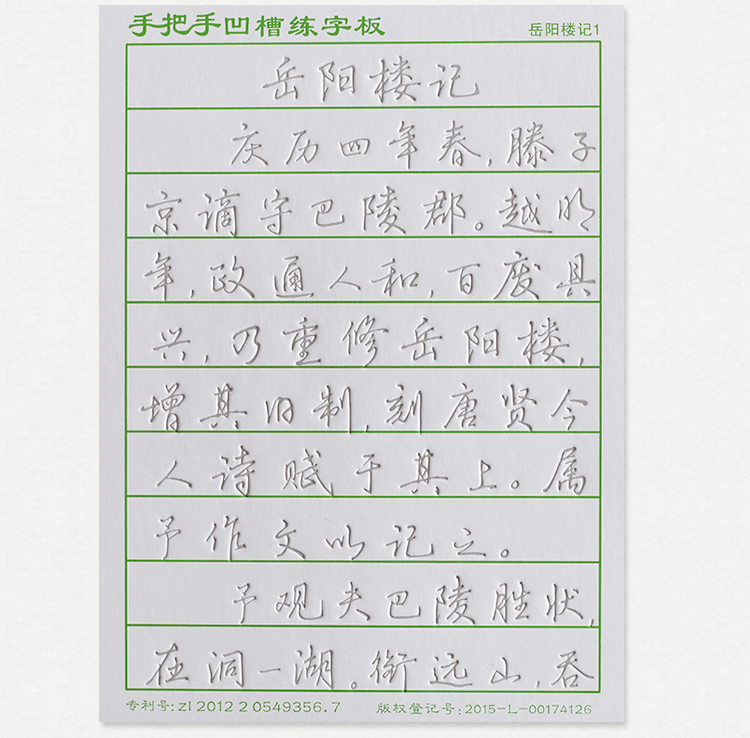 手把手凹槽练字板
岳阳楼记1
岳阳楼记
庆历四年春,滕子
京谪守巴陵郡。越明
年,政通人和,百废具
兴,乃重修岳阳楼,
增其旧制,刻唐贤今
人诗赋于其上。属
予作文以记之。
予观夫巴陵胜状,
在洞一湖。衔远山,吞
专利号:zl 2012 2 0549356.7
版权登记号:2015-L-00174126